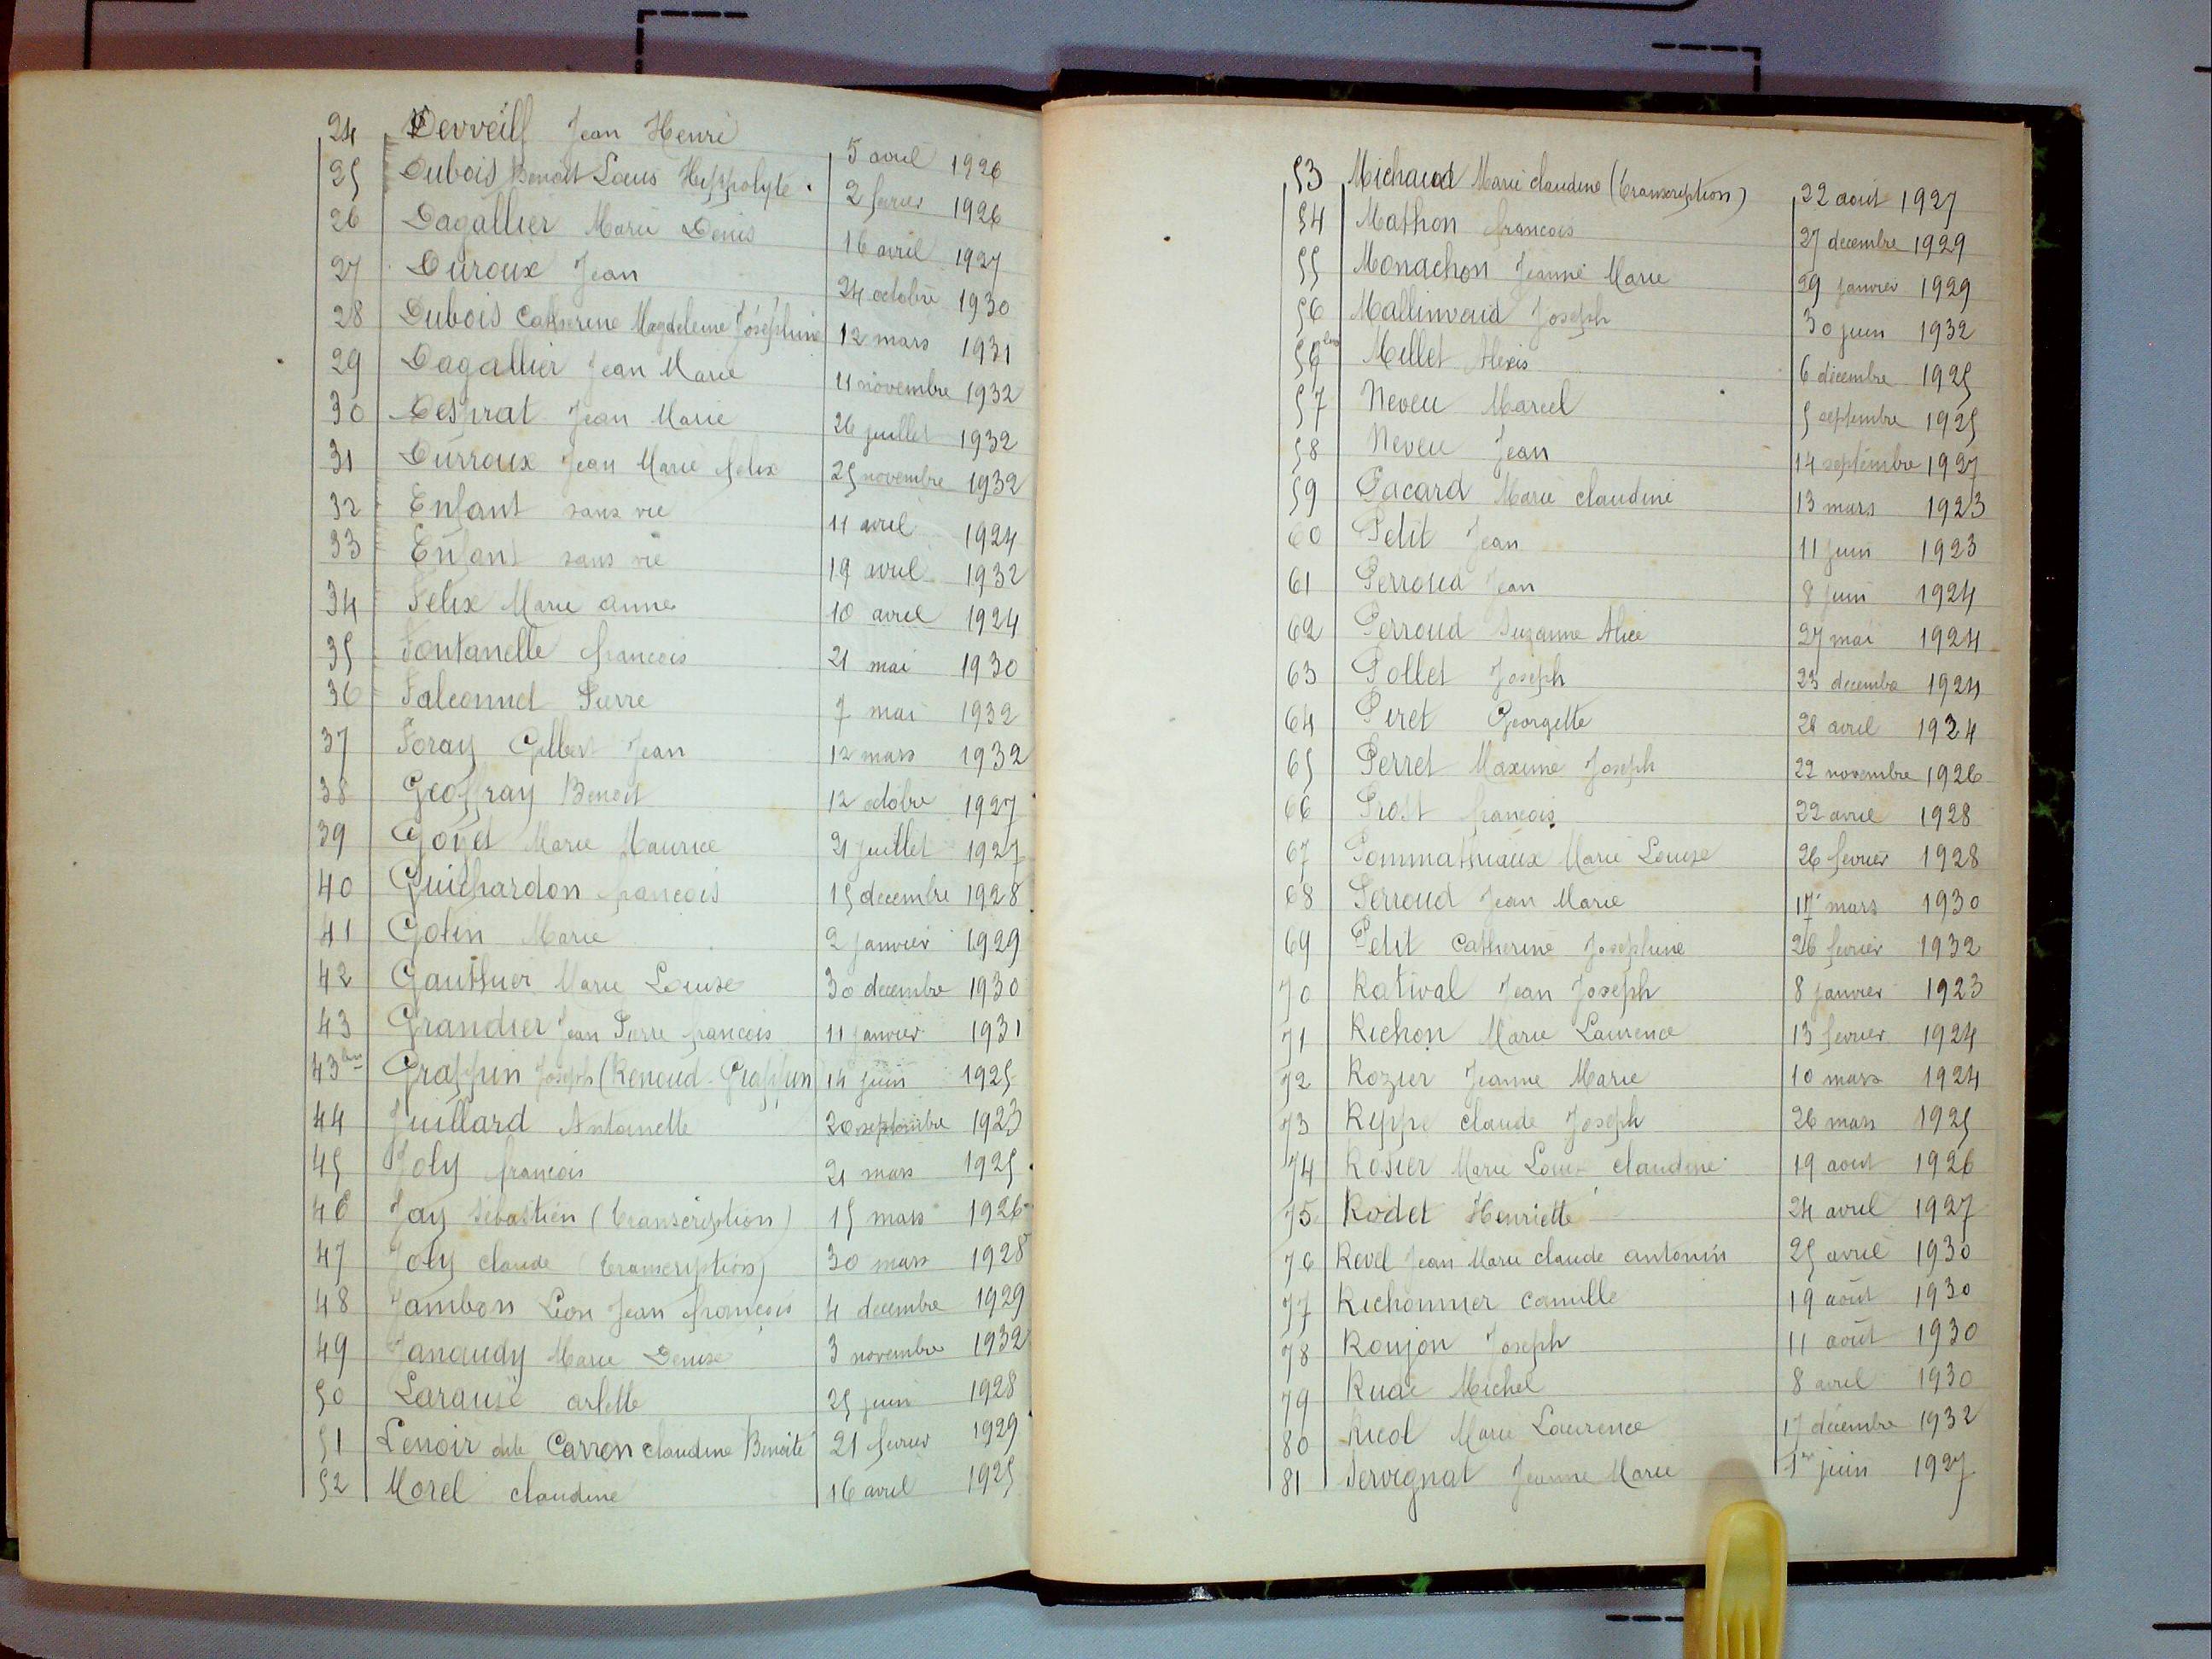 24 Derveill Jean Henri 5 avril 1926
25 Dubois Benoit Louis Hippolyte 2 fevrier 1926
26 Dagallier Marie Denis 16 avril 1927
27 Duroux Jean 24 octobre 1930
28 Dubois Catherine Magdeleine Joséphine 12 mars 1931
29 Dagallier Jean Marie 11 novembre 1932
30 Desprat Jean Marie 26 juillet 1932
31 Durroux Jean Marie felix 25 novembre 1932
32 Enfant sans vie 11 avril 1924
33 Enfant sans vie 19 avril 1932
34 Felix Marie anne 10 avril 1924
35 Fontanelle francois 21 mai 1930
36 Falconnet Pierre 7 mai 1932
37 Foray Gilbert Jean 12 mars 1932
38 Geoffray Benoit 12 octobre 1927
39 Goyet Marie Maurice 21 juillet 1927
40 Guichardon francois 15 decembre 1928
41 Golin Marie 2 janvier 1929
42 Gauthier Marie Louise 30 decembre 1930
43 Grandier Jean Pierre francois 11 janvier 1931
43 bis Grappin Joseph (Renoud-Grappin 14 juin 1925
44 Juillard Antoinette 20 septembre 1923
45 Joly francois 21 mars 1925
46 Jay Sébastien (transcription) 15 mars 1926
47 Joly claude (transcription) 30 mars 1928
48 Jambon Léon Jean francois 4 decembre 1929
49 Janaudy Marie Denise 3 novembre 1932
50 Larause arlette 25 juin 1928
51 Lenoir dite Carron claudine Benoite 21 fevrier 1929
52 Morel claudine 16 avril 1925
53 Michaud Marie claudine (transcription) 22 août 1927
54 Mathon francois 27 decembre 1929
55 Monachon Jeanne Marie 29 janvier 1929
56 Mallinvaud Joseph 30 juin 1932
56 bis Millet Alexis 6 décembre 1925
57 Neveu Marcel 5 septembre 1925
58 Neveu Jean 14 septembre 1927
59 Pacard Marie claudine 13 mars 1923
60 Petit Jean 11 juin 1923
61 Perroud Jean 8 juin 1924
62 Perroud Suzanne Alice 27 mai 1924
63 Pollet Joseph 23 decembre 1924
64 Piret Georgette 28 avril 1924
65 Perret Maxime Joseph 22 novembre 1926
66 Prost francois 22 avril 1928
67 Pommathiaux Marie Louise 26 fevrier 1928
68 Perroud Jean Marie 17 mars 1930
69 Petit Catherine Josephine 26 fevrier 1932
70 Ratival Jean Joseph 8 janvier 1923
71 Richon Marie Laurence 13 fevrier 1924
72 Rozier Jeanne Marie 10 mars 1924
73 Reppe claude Joseph 26 mars 1925
74 Rosier Marie Louise claudine 19 aout 1926
75 Rodet Henriette 24 avril 1927
76 Revel Jean Marie claude antonin 25 avril 1930
77 Richonnier camille 19 août 1930
78 Roujon Joseph 11 août 1930
79 Ruai Michel 8 avril 1930
80 Ricol Marie Laurence 17 décembre 1932
81 Servignat Jeanne Marie 1er juin 1927